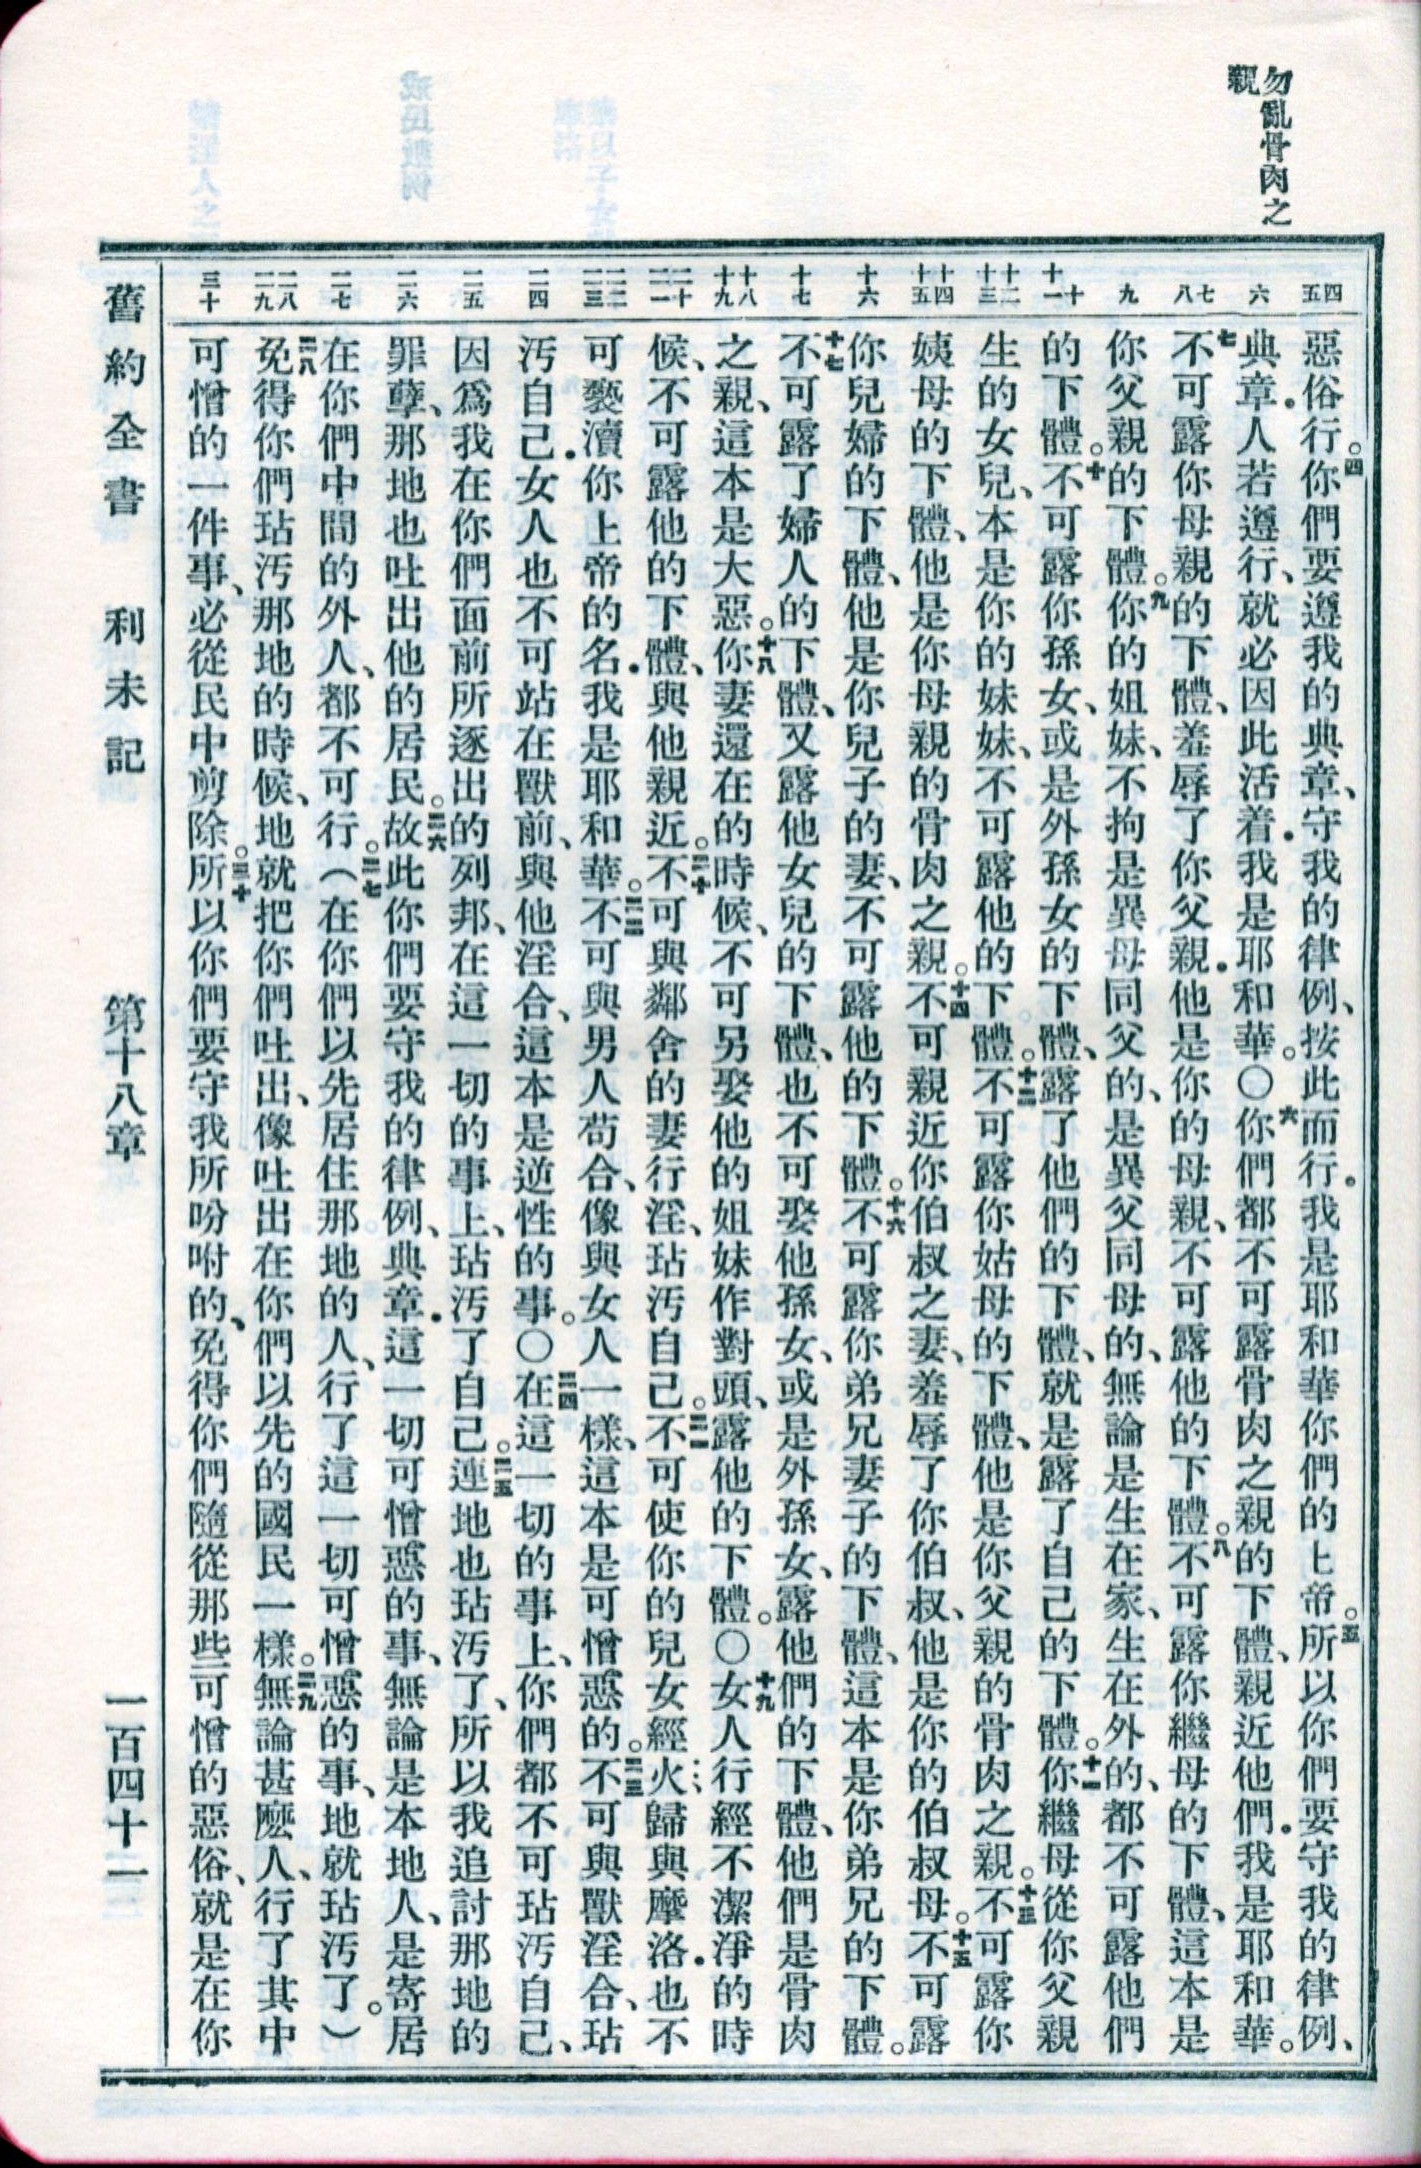 勿亂骨肉之
親
四
五
六
七
八
九
十
十一
十二
十三
十四
十五
十六
十七
十八
十九
二十
二一
二二
二三
二四
二五
二六
二七
二八
二九
三十
惡俗行。四你們要遵我的典章、守我的律例、按此而行．我是耶和華你們的上帝。五所以你們要守我的律例、
典章．人若遵行、就必因此活着．我是耶和華。〇六你們都不可露骨肉之親的下體、親近他們．我是耶和華。
七不可露你母親的下體、羞辱了你父親．他是你的母親、不可露他的下體。八不可露你繼母的下體、這本是
你父親的下體。九你的姐妹、不拘是異母同父的、是異父同母的、無論是生在家、生在外的、都不可露他們
的下體。十不可露你孫女、或是外孫女的下體、露了他們的下體、就是露了自己的下體。十一你繼母從你父親
生的女兒、本是你的妹妹、不可露他的下體。十二不可露你姑母的下體、他是你父親的骨肉之親。十三不可露你
姨母的下體、他是你母親的骨肉之親。十四不可親近你伯叔之妻、羞辱了你伯叔、他是你的伯叔母。十五不可露
你兒婦的下體、他是你兒子的妻、不可露他的下體。十六不可露你弟兄妻子的下體、這本是你弟兄的下體。
十七不可露了婦人的下體、又露他女兒的下體、也不可娶他孫女、或是外孫女、露他們的下體、他們是骨肉
之親、這本是大惡。十八你妻還在的時候、不可另娶他的姐妹作對頭、露他的下體。〇十九女人行經不潔淨的時
候、不可露他的下體、與他親近。二十不可與鄰舍的妻行淫、玷污自己。二一不可使你的兒女經火歸與摩洛．也不
可褻瀆你上帝的名．我是耶和華。二二不可與男人苟合、像與女人一樣、這本是可憎惡的。二三不可與獸淫合、玷
汚自己．女人也不可站在獸前、與他淫合、這本是逆性的事。〇二四在這一切的事上、你們都不可玷汚自己、
因爲我在你們面前所逐出的列邦、在這一切的事上、玷汚了自己。二五連地也玷汚了、所以我追討那地的
罪孽、那地也吐出他的居民。二六故此你們要守我的律例、典章．這一切可憎惡的事、無論是本地人、是寄居
在你們中間的外人、都不可行。二七（在你們以先居住那地的人、行了這一切可憎惡的事、地就玷汚了。）
二八免得你們玷汚那地的時候、地就把你們吐出、像吐出在你們以先的國民一樣。二九無論甚麽人、行了其中
可憎的一件事、必從民中剪除。三十所以你們要守我所吩咐的、免得你們隨從那些可憎的惡俗、就是在你
舊約全書 利未記 第十八章 一百四十一